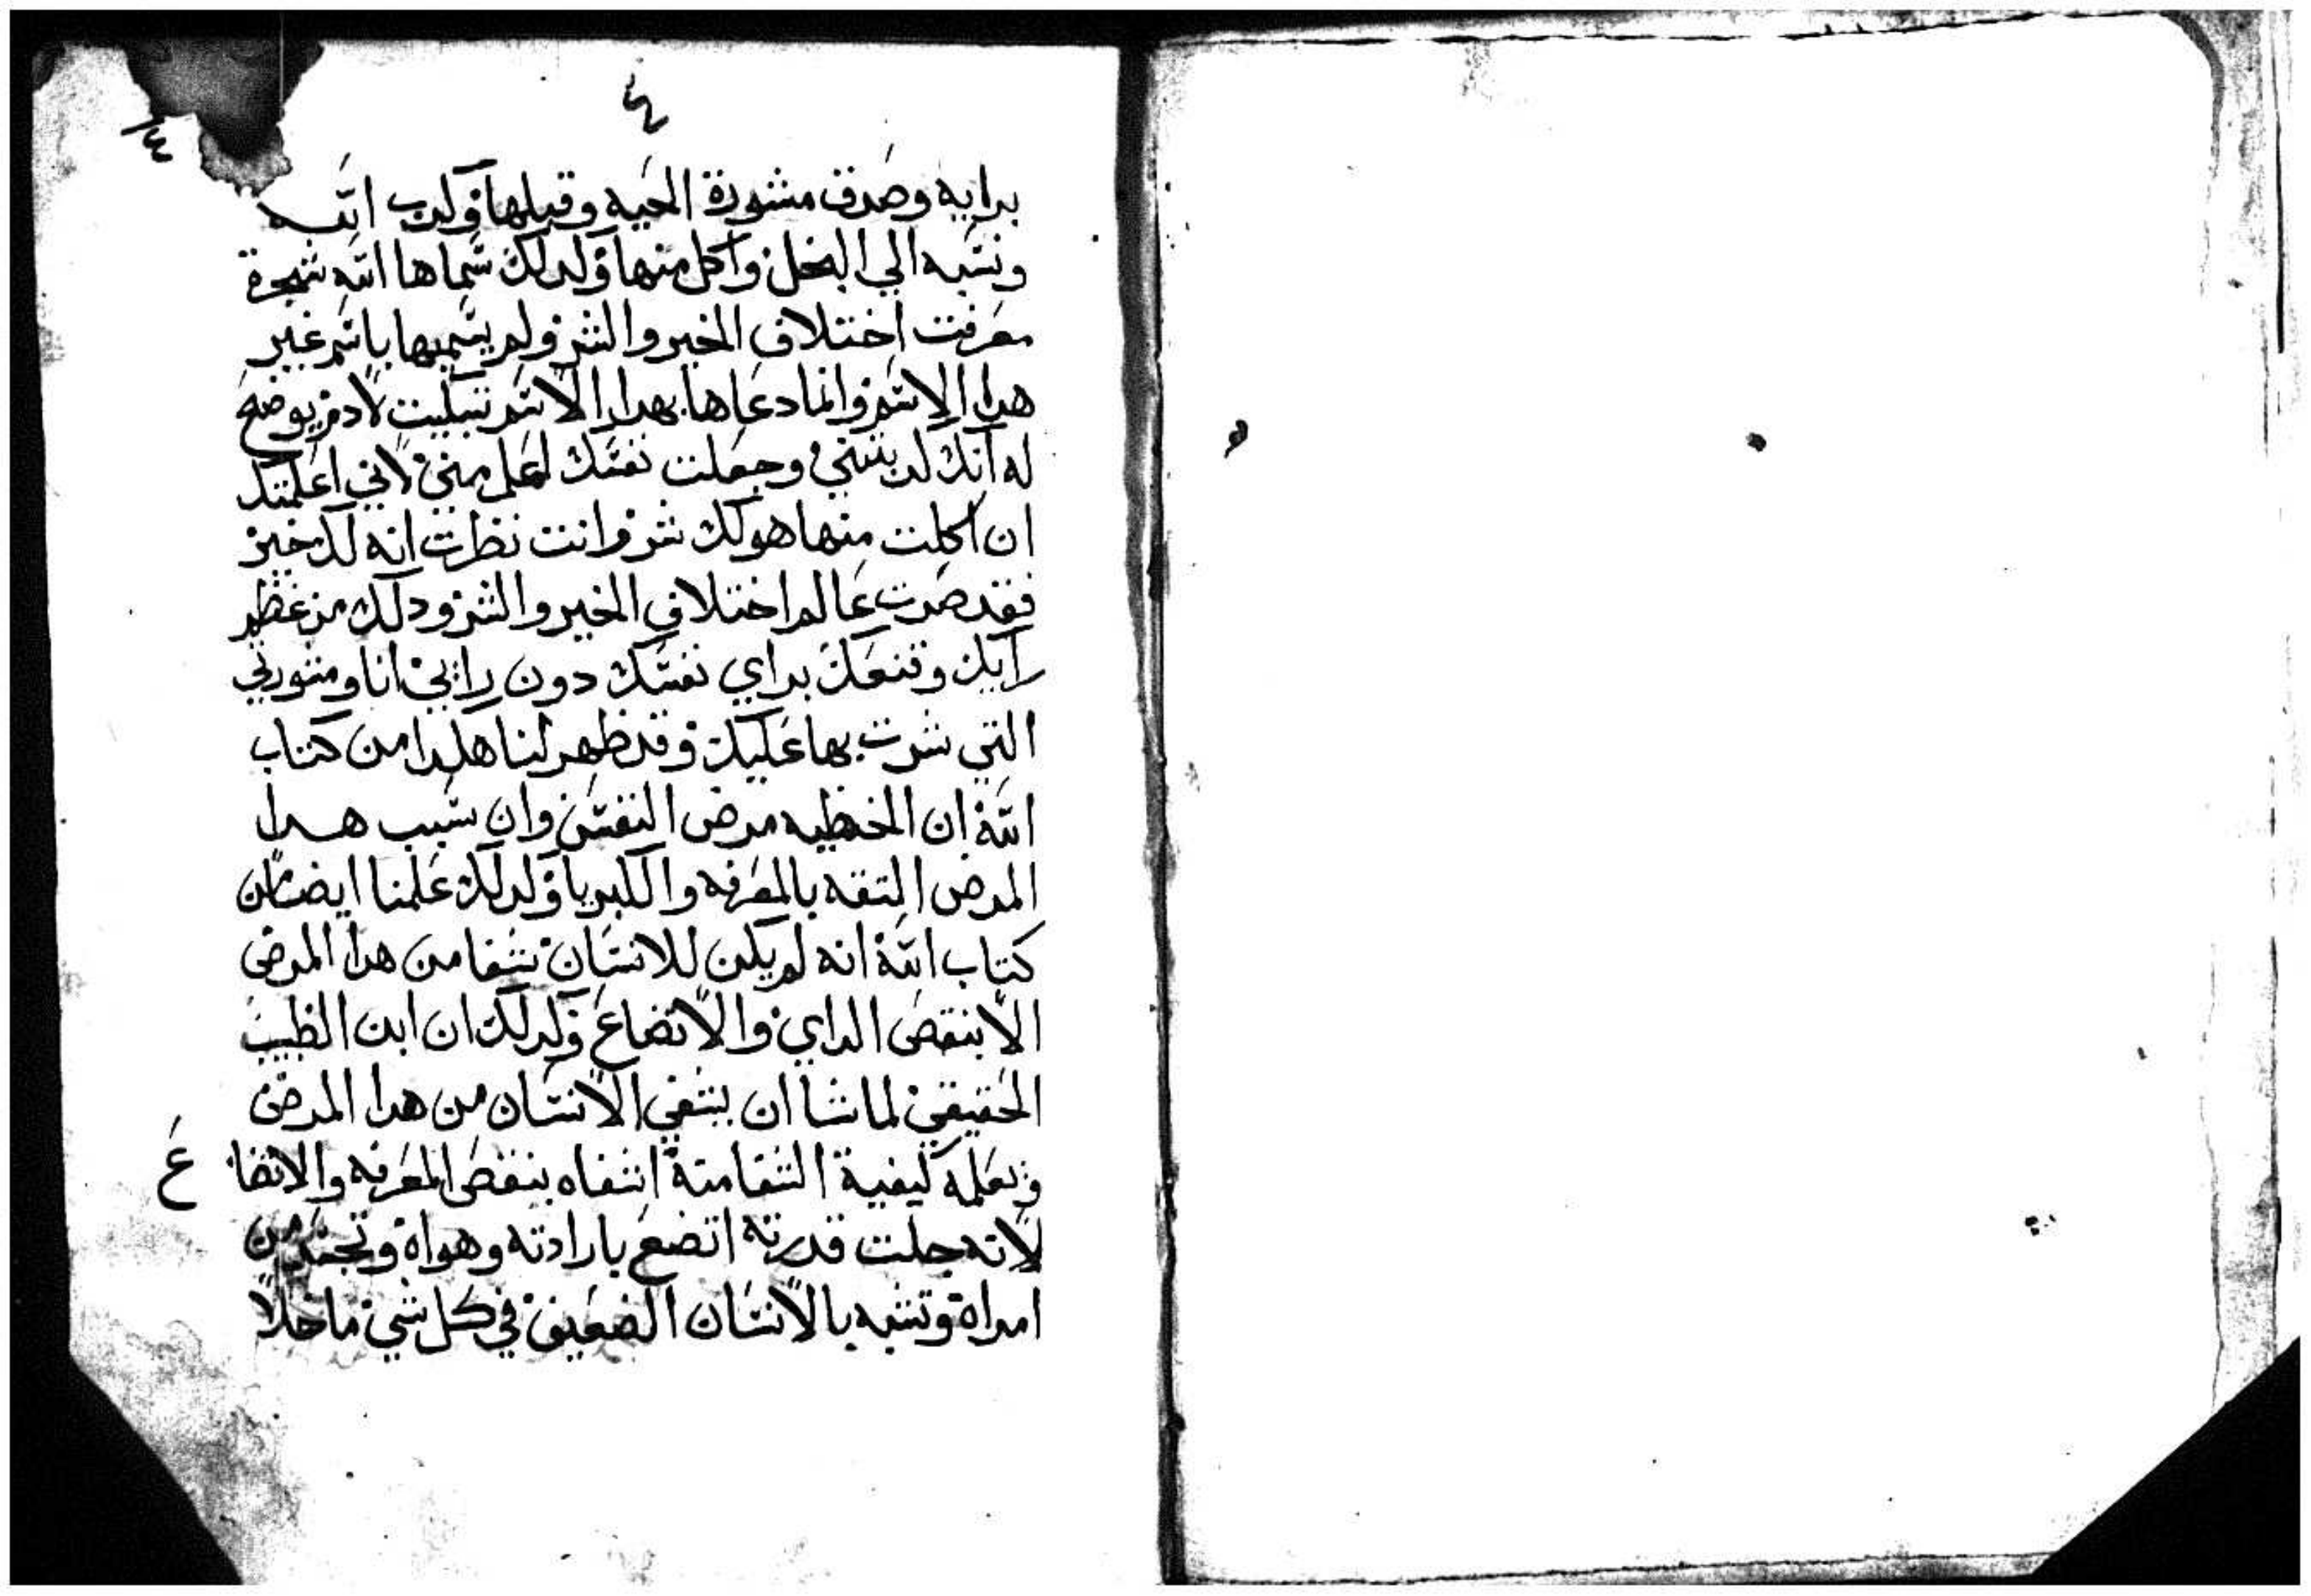 ٤
٤
برايه وصدق مشورة الحيه وقبلها وكدب الله
ونسبه الي البخل واكل منها ولدلك سماها الله شجرة
معرفت اختلاف الخير والشر ولم يسميها باسم غير
هدا الاسم وانما دعاها بهدا الاسم تبكيت لادم يوضح
له انك كدبتني وجعلت نفسك اعلم مني لاني اعلمتك
ان اكلت منها هو لك شر وانت نظرت انه لك خير
فقد صرت عالم اختلاف الخير والشر ودلك من عظم
رايك وقنعك براي نفسك دون رايي انا ومشورتي
التي شرت بها عليك وقد ظهر لنا هكدا من كتاب
الله ان الخطيه مرض النفس وان سبب هدا
المرض التقه بالمعرفه والكبريا ولدلك علمنا ايضا من
كتاب الله انه لم يكن للانسان شفا من هدا المرض
الا بنقص الراي والاتضاع ولدلك ان ابن الطبيب
الحقيقي لما شا ان يشفي الانسان من هدا المرض
ويعلمه كيفية الشفا منه اشفاه بنقص المعرفه والاتضا
ع
لانه جلت قدرته اتضع بارادته وهواه وتجسد من
امراة وتشبه بالانسان الضعيف في كل شي ما خلا